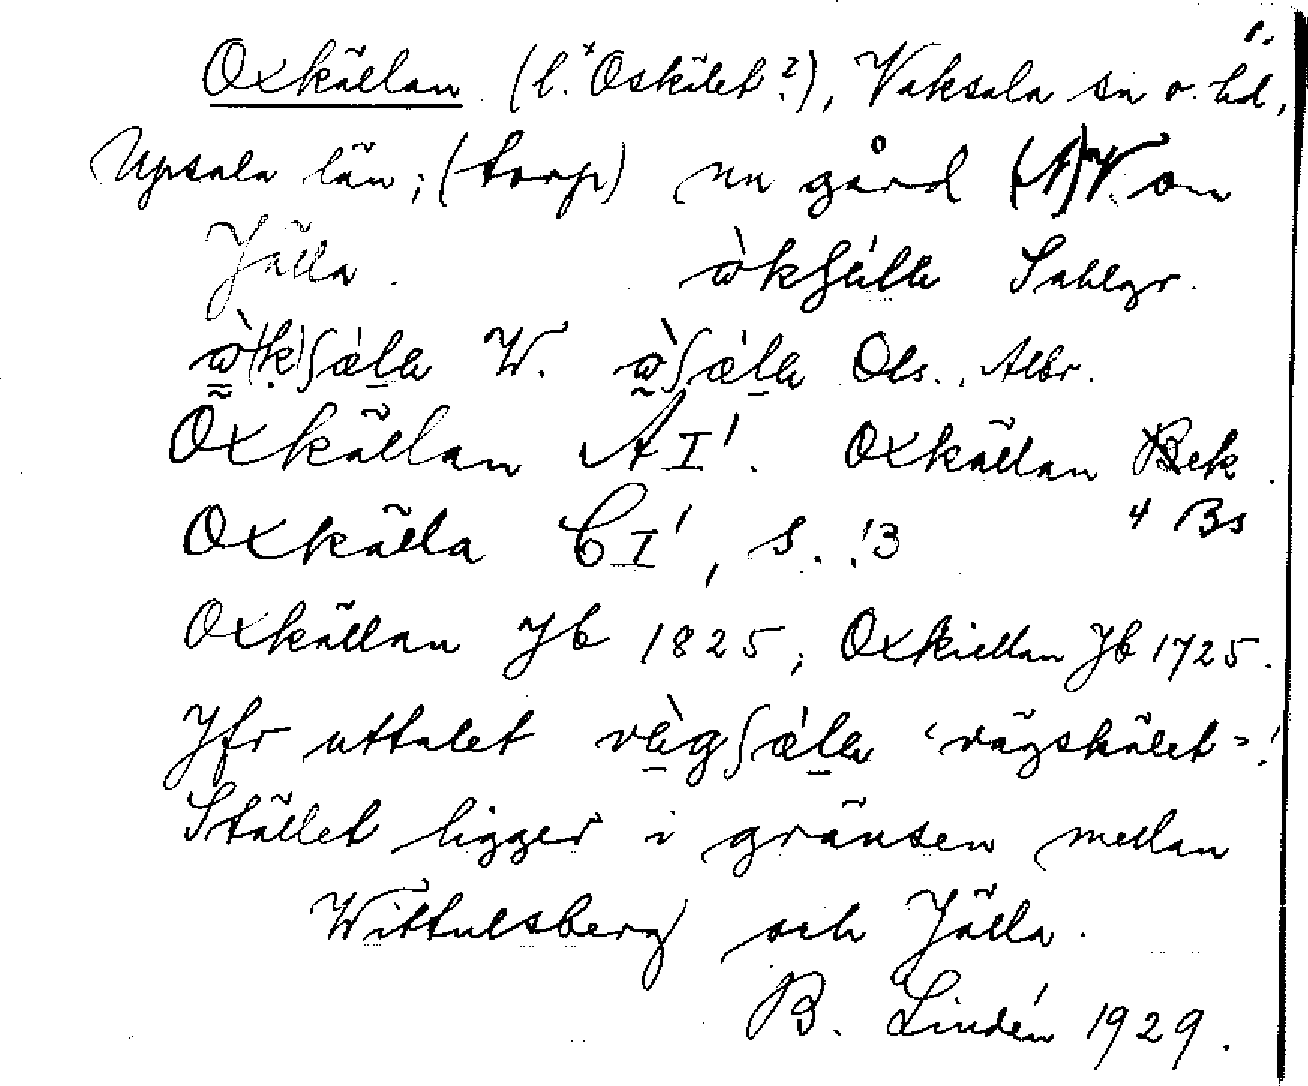 1.
Oxkällan (l. *Oskälet?), Vaksala sn o. hd,
Upsala län; (torp) nu gård (N)V om
Jälla. Sahlgr.
W. Ols., Albr.
Oxkällan A I1. Oxkällan Bek
4 Bs
Oxkälla C I1, s. 13
Oxkällan Jb 1825, Oxkiellan Jb 1725.
Jfr uttalet 'vägskälet'!
Stället ligger i gränsen mellan
Wittulsberg och Jälla.
B. Lindén 1929.